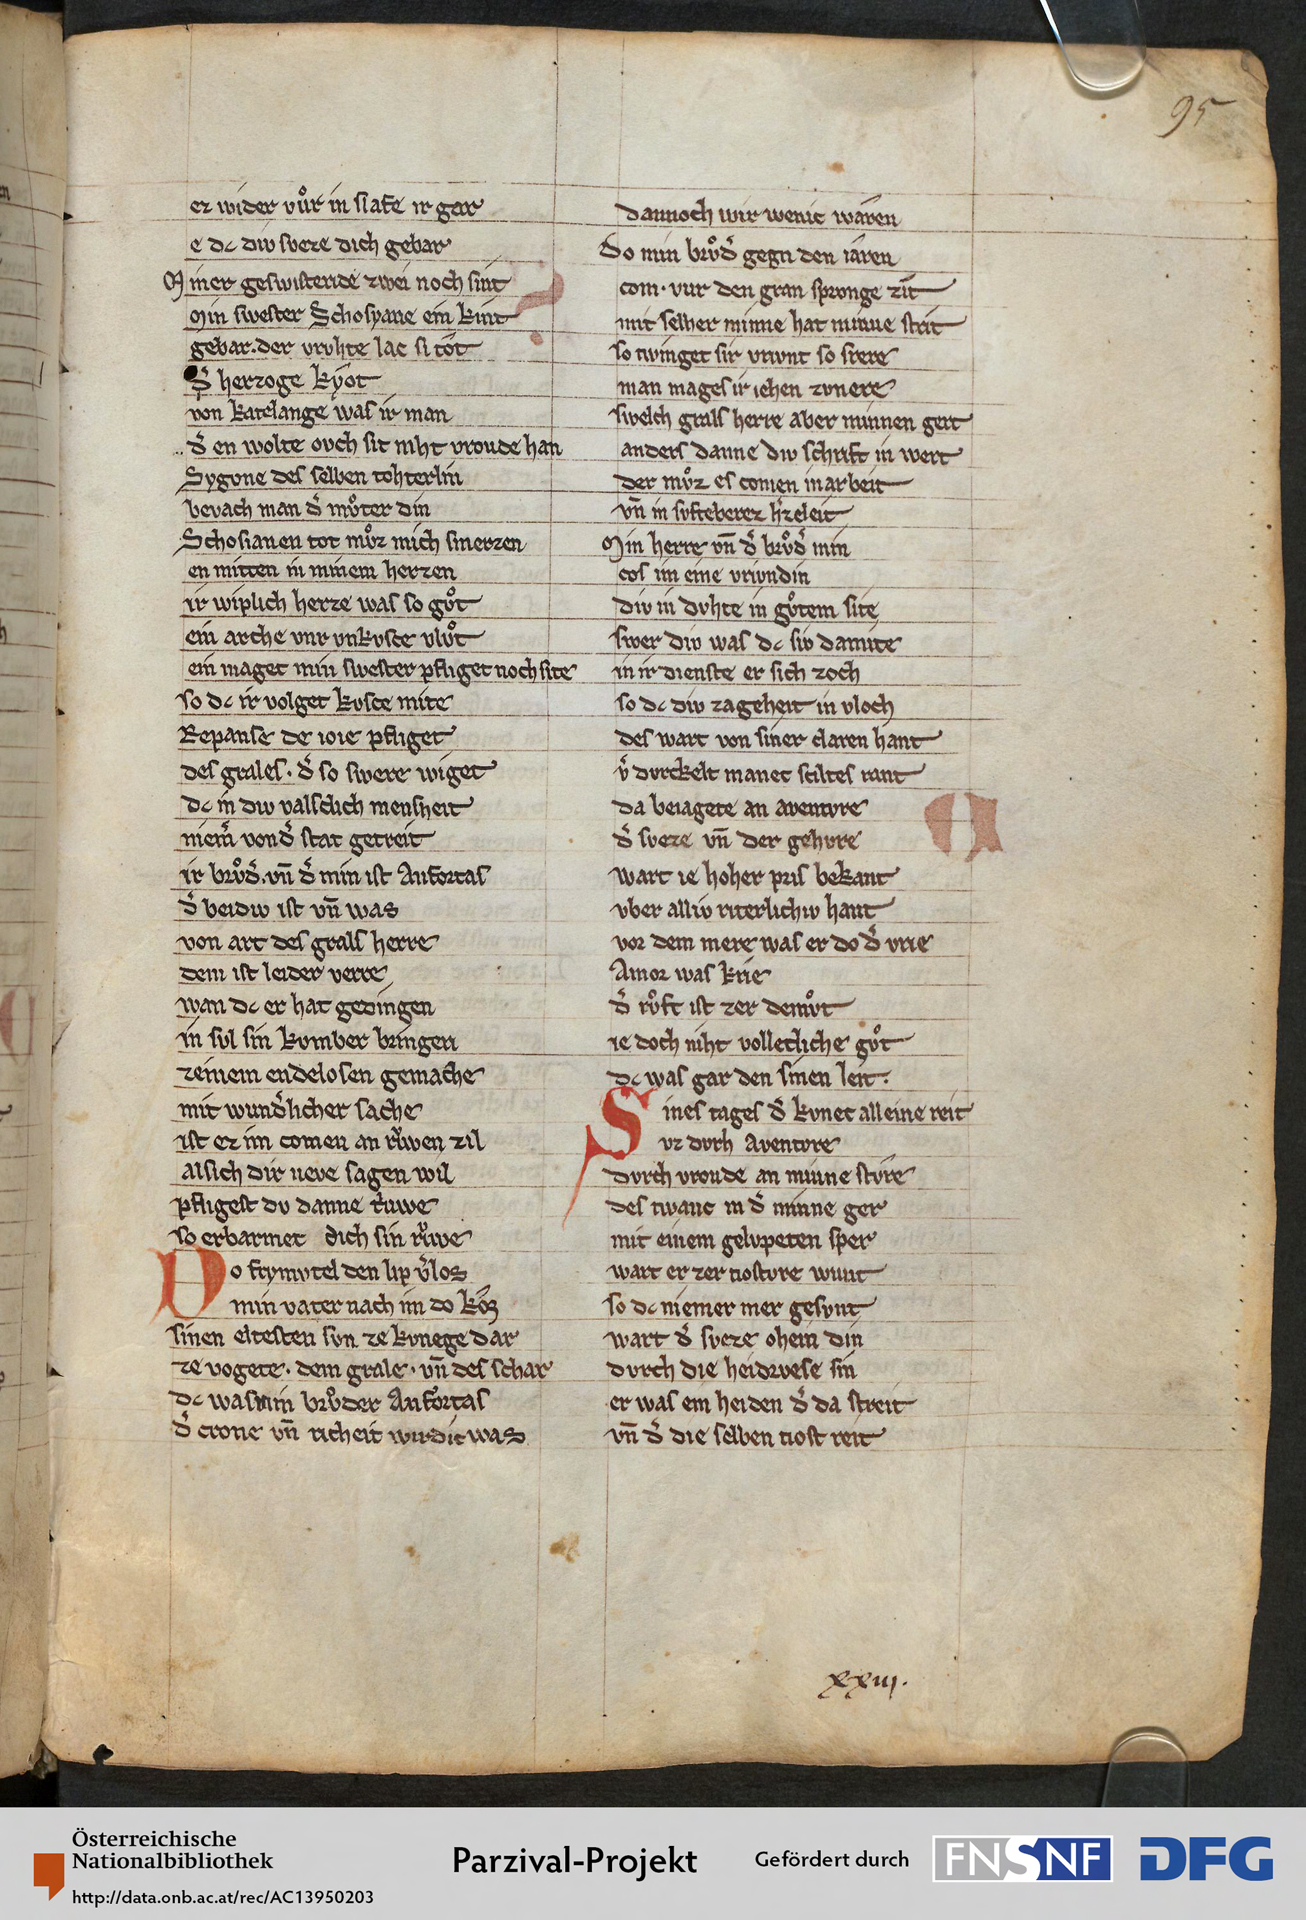 95
er wider vuͦr in slafe ir gar
e dc div svͤze dich gebar
Miner geswisteride zwei noch sint
Min swester Schosyane ein kint
gebar. der vruhte lac si tot
D͛ herzoge kyot
von katelange was ir man
d͛ en wolte ovch sit niht vroude han
Sygvne des selben tohterlin
bevach man d͛ muͦter din
Schosianen tot muͦz mich smerzen
en mitten in minem herzen
ir wiplich herze was so guͦt
ein arche vur vnkvsce vluͦt
ein maget min swester pfliget noch site
so dc ir volget kvsce mite
Repanse de ioie pfliget
des grales. d͛ so swere wiget
dc in div valschlich mensheit
niem͛ von d͛ stat getreit
ir bruͦd͛. vn̄ d͛ min ist Anfortas
d͛ beidiv ist vn̄ was
von art des grals herre
dem ist leider verre
wan dc er hat gedingen
in svl sin kvmber bringen
zeinem endelosen gemache
mit wund͛licher sache
ist ez im comen an rivwen zil
als ich dir neve sagen wil
pfligest dv danne triuwe
so erbarmet dich sin rivwe
Do frymvtel den lip v͛los
min vater nach im do kos
sinen eltesten svn ze kvnege dar
ze vogete. dem grale. vn̄ des schar
dc was min bruͦder Anfortas
d͛ crone vn̄ richeit wirdic was
dannoch wir wenic waren
Do min bruͦd͛ gegn den iaren
com. vur den gran sprvnge zit
mit selher minne hat minne strit
so twinget sir vrivnt so sere
man mages ir iehen zvnere
swelch grals herre aber minnen gert
anders danne div schrift in wert
der muͦz es comen in arbeit
vn̄ in svfteberez h͛zeleit
Min herre vn̄ d͛ bruͦd͛ min
cos im eine vrivndin
div in dvhte in guͦtem site
swer div was dc siv damite
in ir dienste er sich zoch
so dc div zageheit in vloch
des wart von siner claren hant
v͛dvrckelt manec sciltes rant
da beiagete an aventvre
d͛ svͤze vn̄ der gehvre
wart ie hoher pris bekant
vber alliv riterlichiv hant
vor dem mere was er do d͛ vrie
Amor was krie
d͛ ruͦft ist zer demuͦt
ie doch niht volleclliche guͦt
dc was gar den sinen leit.
Sines tages d͛ kvnec alleine reit
vz dvrh Aventvre
dvrch vroude an minne stvre
des twanc in d͛ minne ger
mit einem gelvpeten sper
wart er zer tiostvre wunt
so dc niemer mer gesvnt
wart d͛ svͤze ohein din
dvrch die heidrvese sin
er was ein heiden d͛ da streit
vn̄ d͛ die selben tiost reit
xxiii.
Österreichische
Nationalbibliothek
http://data.onb.ac.at/rec/AC13950203
Parzival-Projekt
Gefördert durch
FNSNF
DFG